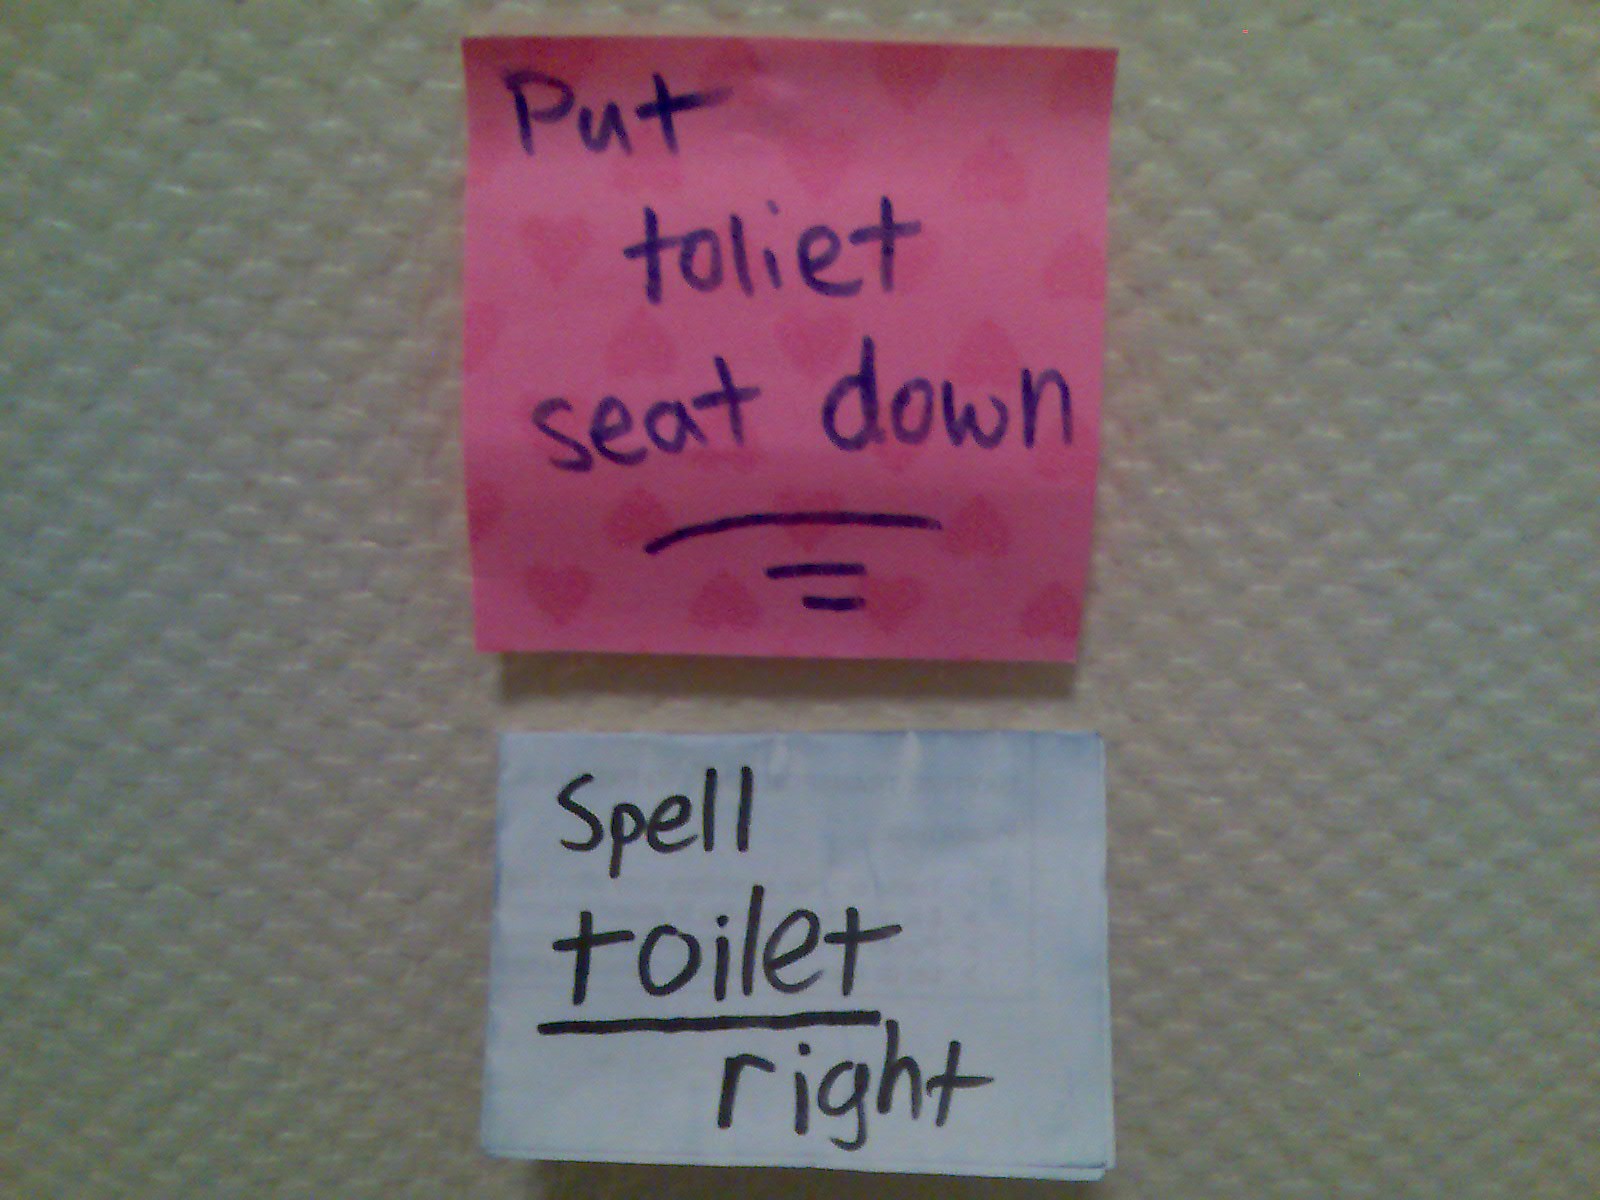 Put
toliet
seat down
Spell
toilet
right